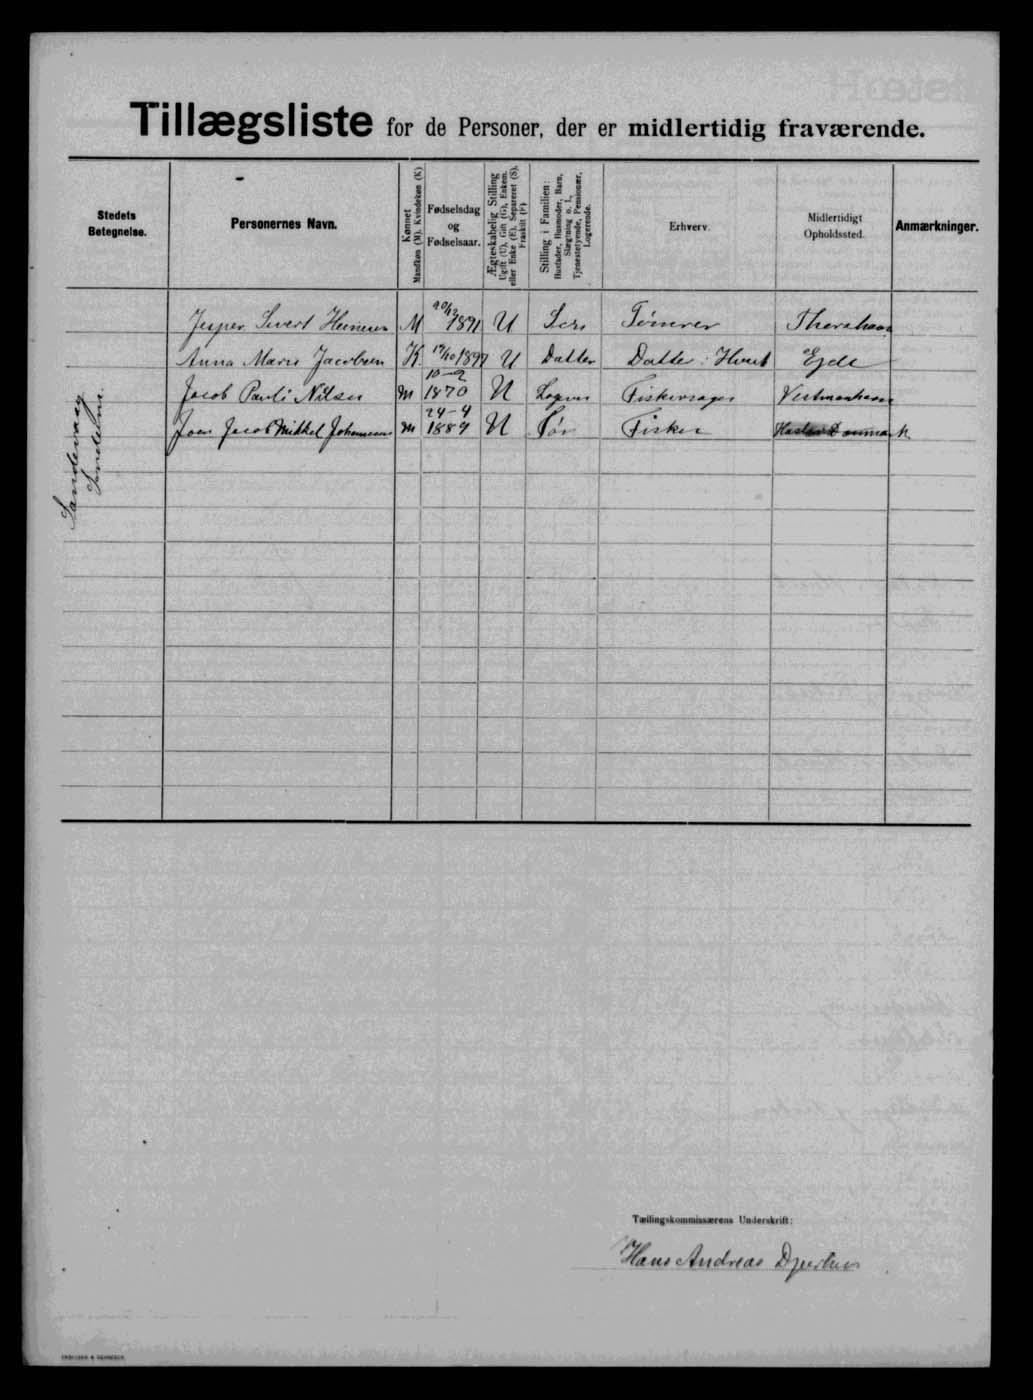 Tillægsliste for de Personer, der er midlertidig fraværende.
Stedets Betegnelse.
Personernes Navn.
Kønnet
Mandkøn (M). Kvindekøn (K)
Fødselsdag og Fødselsaar.
Ægteskabelig Stilling
Ugift (U), Gift (G), Enkem. eller Enke (E), Separeret (S), Fraskilt (F)
Stilling i Familien:
Husfader, Husmoder, Barn, Slægtning o. l., Tjenestetyende, Pensionær, Logerende.
Erhverv.
Midlertidigt Opholdssted.
Anmærkninger.
Sandevaag
Jesper Sivert M 1891 U Tømrer Thorshavn
Anna Marie Jacobsen K U Datter Datter i Huset Ejde
Jacob Pauli Nilsen M 10-2 1870 U Vestmanhavn
Joen Jacob Mikkel Johannesen M 24-4 1889 U Fisker Danmark
Tællingskommissærens Underskrift:
Hans Andreas